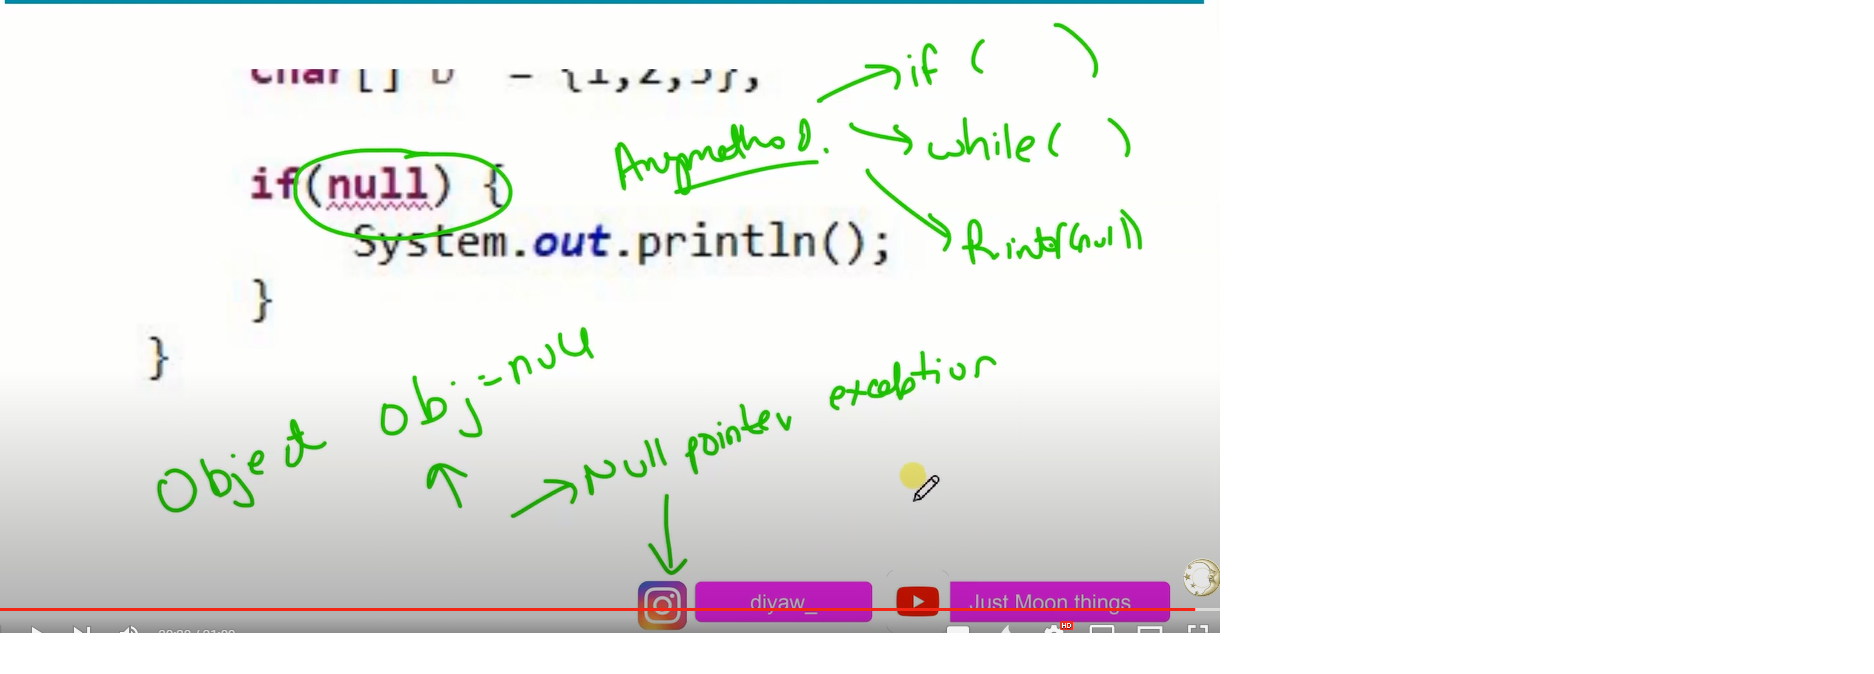 char[] b = {1,2,3},
if(null) {
System.out.println();
}
}
Anymethod.
if ( )
while ( )
Printf(null)
Object obj = null
Null pointer exception
diyaw_
Just Moon things
HD